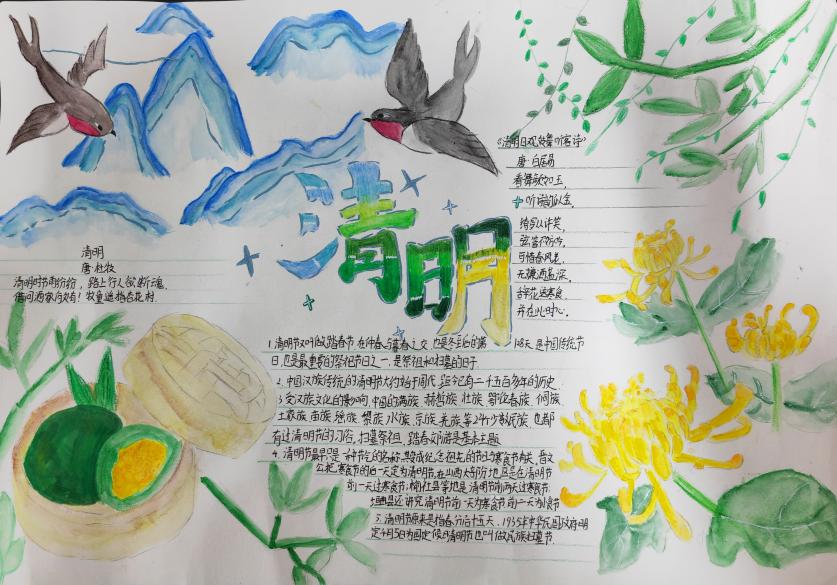 清明
清明
唐·杜牧
清明时节雨纷纷，路上行人欲断魂，
借问酒家何处有！牧童遥指杏花村.
唐·白居易
看舞颜如玉，
听诗韵似金，
绮罗从许笑，
弦管不妨吟，
可惜春风老，
无嫌酒盏深，
辞花送寒食
并在此时心，
1.清明节又叫做踏青节，在仲春与暮春之交，也是冬至后的第108天，是中国传统节
日，也是最重要的祭祀节日之一，是祭祖和扫墓的日子.
2.中国汉族传统的清明节大约始于周代，距今已有二千五百多年的历史.
3.受汉族文化的影响，中国的满族、赫哲族、壮族、鄂伦春族、侗族、
土家族、苗族、瑶族、黎族、水族、京族、羌族等24个少数民族，也都
有过清明节的习俗，扫墓祭祖，踏青郊游是基本主题
4.清明节最早只是一种节气的名称，
公把寒食节的后一天定为清明节，在山西大部分地区是在清明节
前一天过寒食节，榆社县等地是清明节前两天过寒食节
还讲究清明节前一天为寒食节前二天为
5.清明节原来是指春分后十五天，1935年中华民国政府明
定4月5日为国定假日清明节也叫做民族扫墓节.